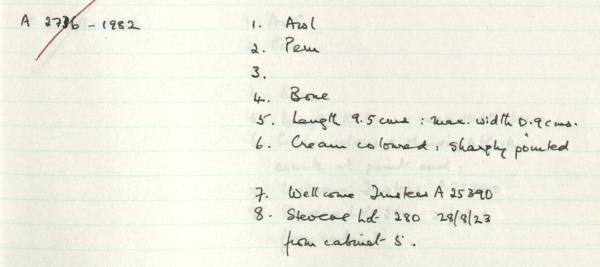 A 2736 - 1982
1. Awl
2. Peru
3.
4. Bone
5. Length 9.5cms : max. width 0.9cms.
6. Cream coloured : sharply pointed
7. Wellcome Trustees A 25390
8. Stevens Ltd 280 28/8/23
from cabinet 5.